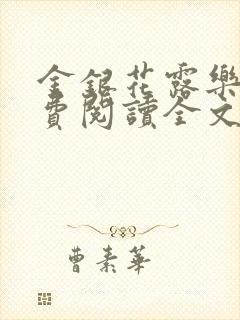 金銀花露樂
費閱讀全文
曹素華